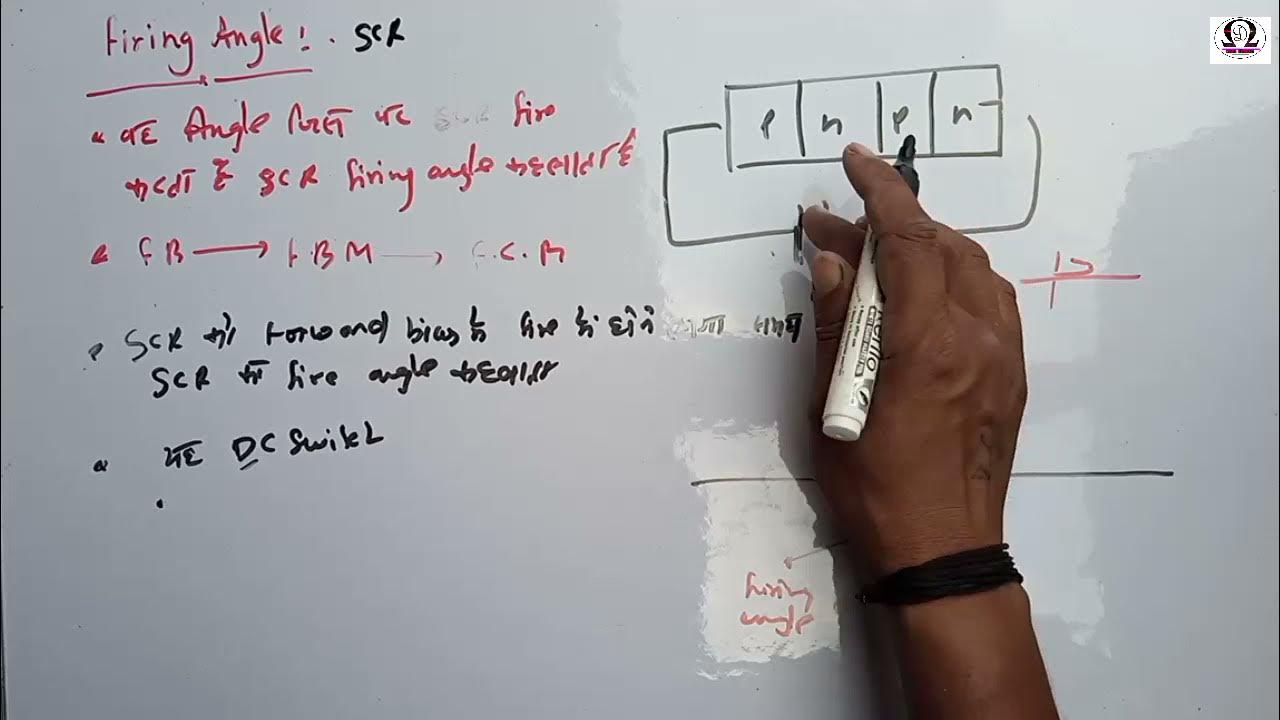 Firing Angle : SCR
यह Angle जिसमें यह SCR fire
करता है SCR firing angle कहलाता है
FB → F.B.M → F.C.M
SCR को Forward bias में fire में होने
SCR का fire angle कहलाता
यह DC Switch
P n P n
firing
angle